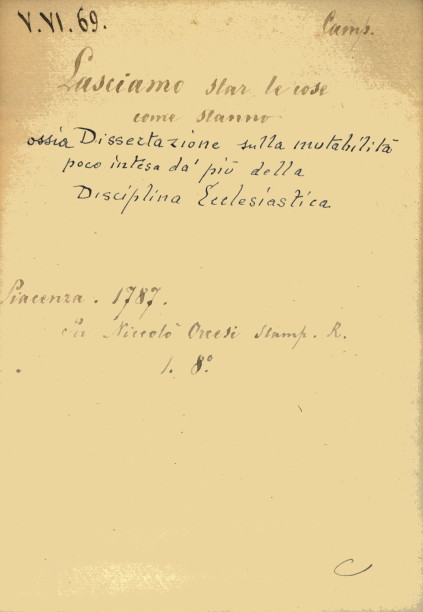 V.VI.69.
Camp.
Lasciamo star le cose
come stanno
ossia Dissertazione sulla mutabilità
poco intesa da' più della
Disciplina Ecclesiastica
Piacenza. 1787.
Per Niccolò Orcesi Stamp. R.
1. 8º
C